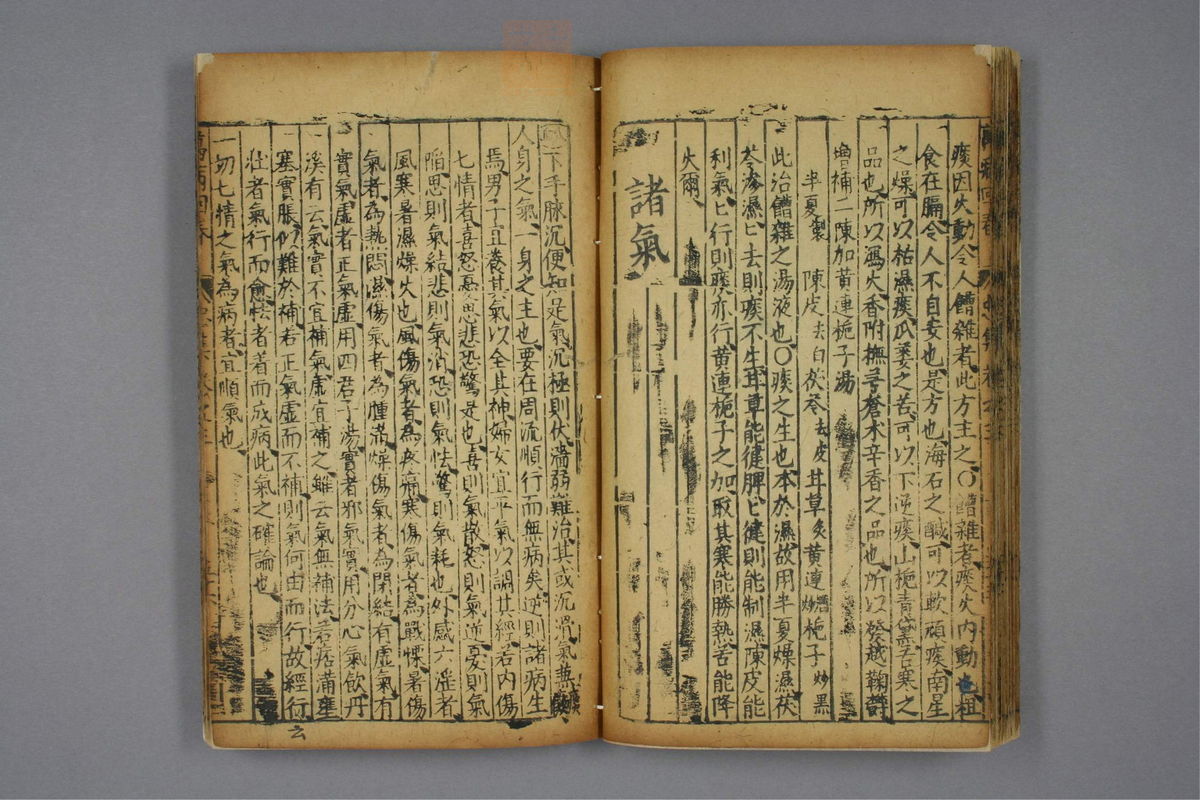 痰因火動令人饒雜者此方主之〇饒雜者痰火內動也粗
食在膈令人不自安也是方也海石之醎可以軟頑痰南星
之燥可以枯濕痰瓜蔞之苦可以下逆痰山梔青黛苦寒之
品也所以瀉火香附撫芎蒼术辛香之品也所以發越鞠欝
增補二陳加黃連梔子湯
半夏製 陳皮去白 茯苓去皮 甘草炙 黃連炒 梔子炒黑
此治饒雜之湯液也〇痰之生也本於濕故用半夏燥濕茯
苓滲濕匕去則痰不生甘草能健脾匕健則能制濕陳皮能
利氣匕行則痰亦行黃連梔子之加取其寒能勝熱苦能降
火爾
諸氣
下手脉沉便知是氣沉極則伏濇弱難治其或沉滑氣兼痰飲
人身之氣一身之主也要在周流順行而無病矣逆則諸病生
焉男子宜養其氣以全其神婦女宜平氣以調其經若內傷
七情者喜怒憂思悲恐驚是也喜則氣散怒則氣逆憂則氣
陷思則氣結悲則氣消恐則氣怯驚則氣耗也外感六淫者
風寒暑濕燥火也風傷氣者為疼痛寒傷氣者為戰慄暑傷
氣者為熱悶濕傷氣者為腫滿燥傷氣者為閉結有虛氣有
實氣虛者正氣虛用四君子湯實者邪氣實用分心氣飲丹
溪有云氣實不宜補氣虛宜補之雖云氣無補法若痞滿壅
塞實脹似難於補若正氣虛而不補則氣何由而行故經行
壯者氣行而愈怯者著而成病此氣之確論也
一切七情之氣為病者宜順氣也
萬病回春
云